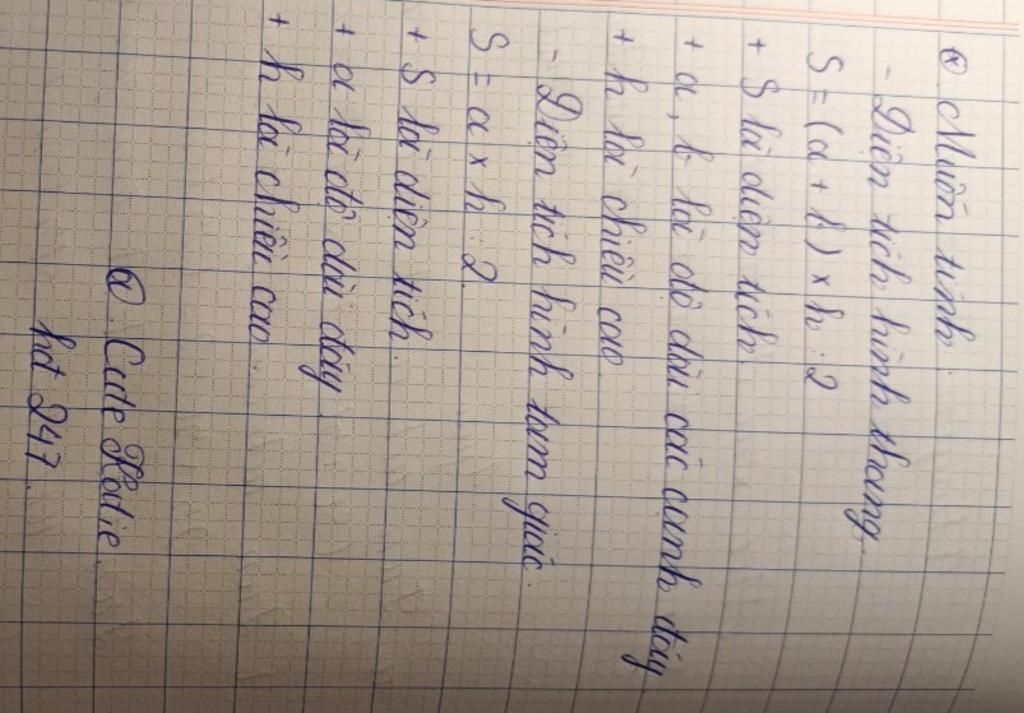 * Muốn tính.
- Diện tích hình thang.
S = (a + b) x h : 2
+ S là diện tích
+ a, b là độ dài các cạnh đáy
+ h là chiều cao.
- Diện tích hình tam giác.
S = a x h : 2.
+ S là diện tích.
+ a là độ dài đáy.
+ h là chiều cao.
Cute
hot 247.